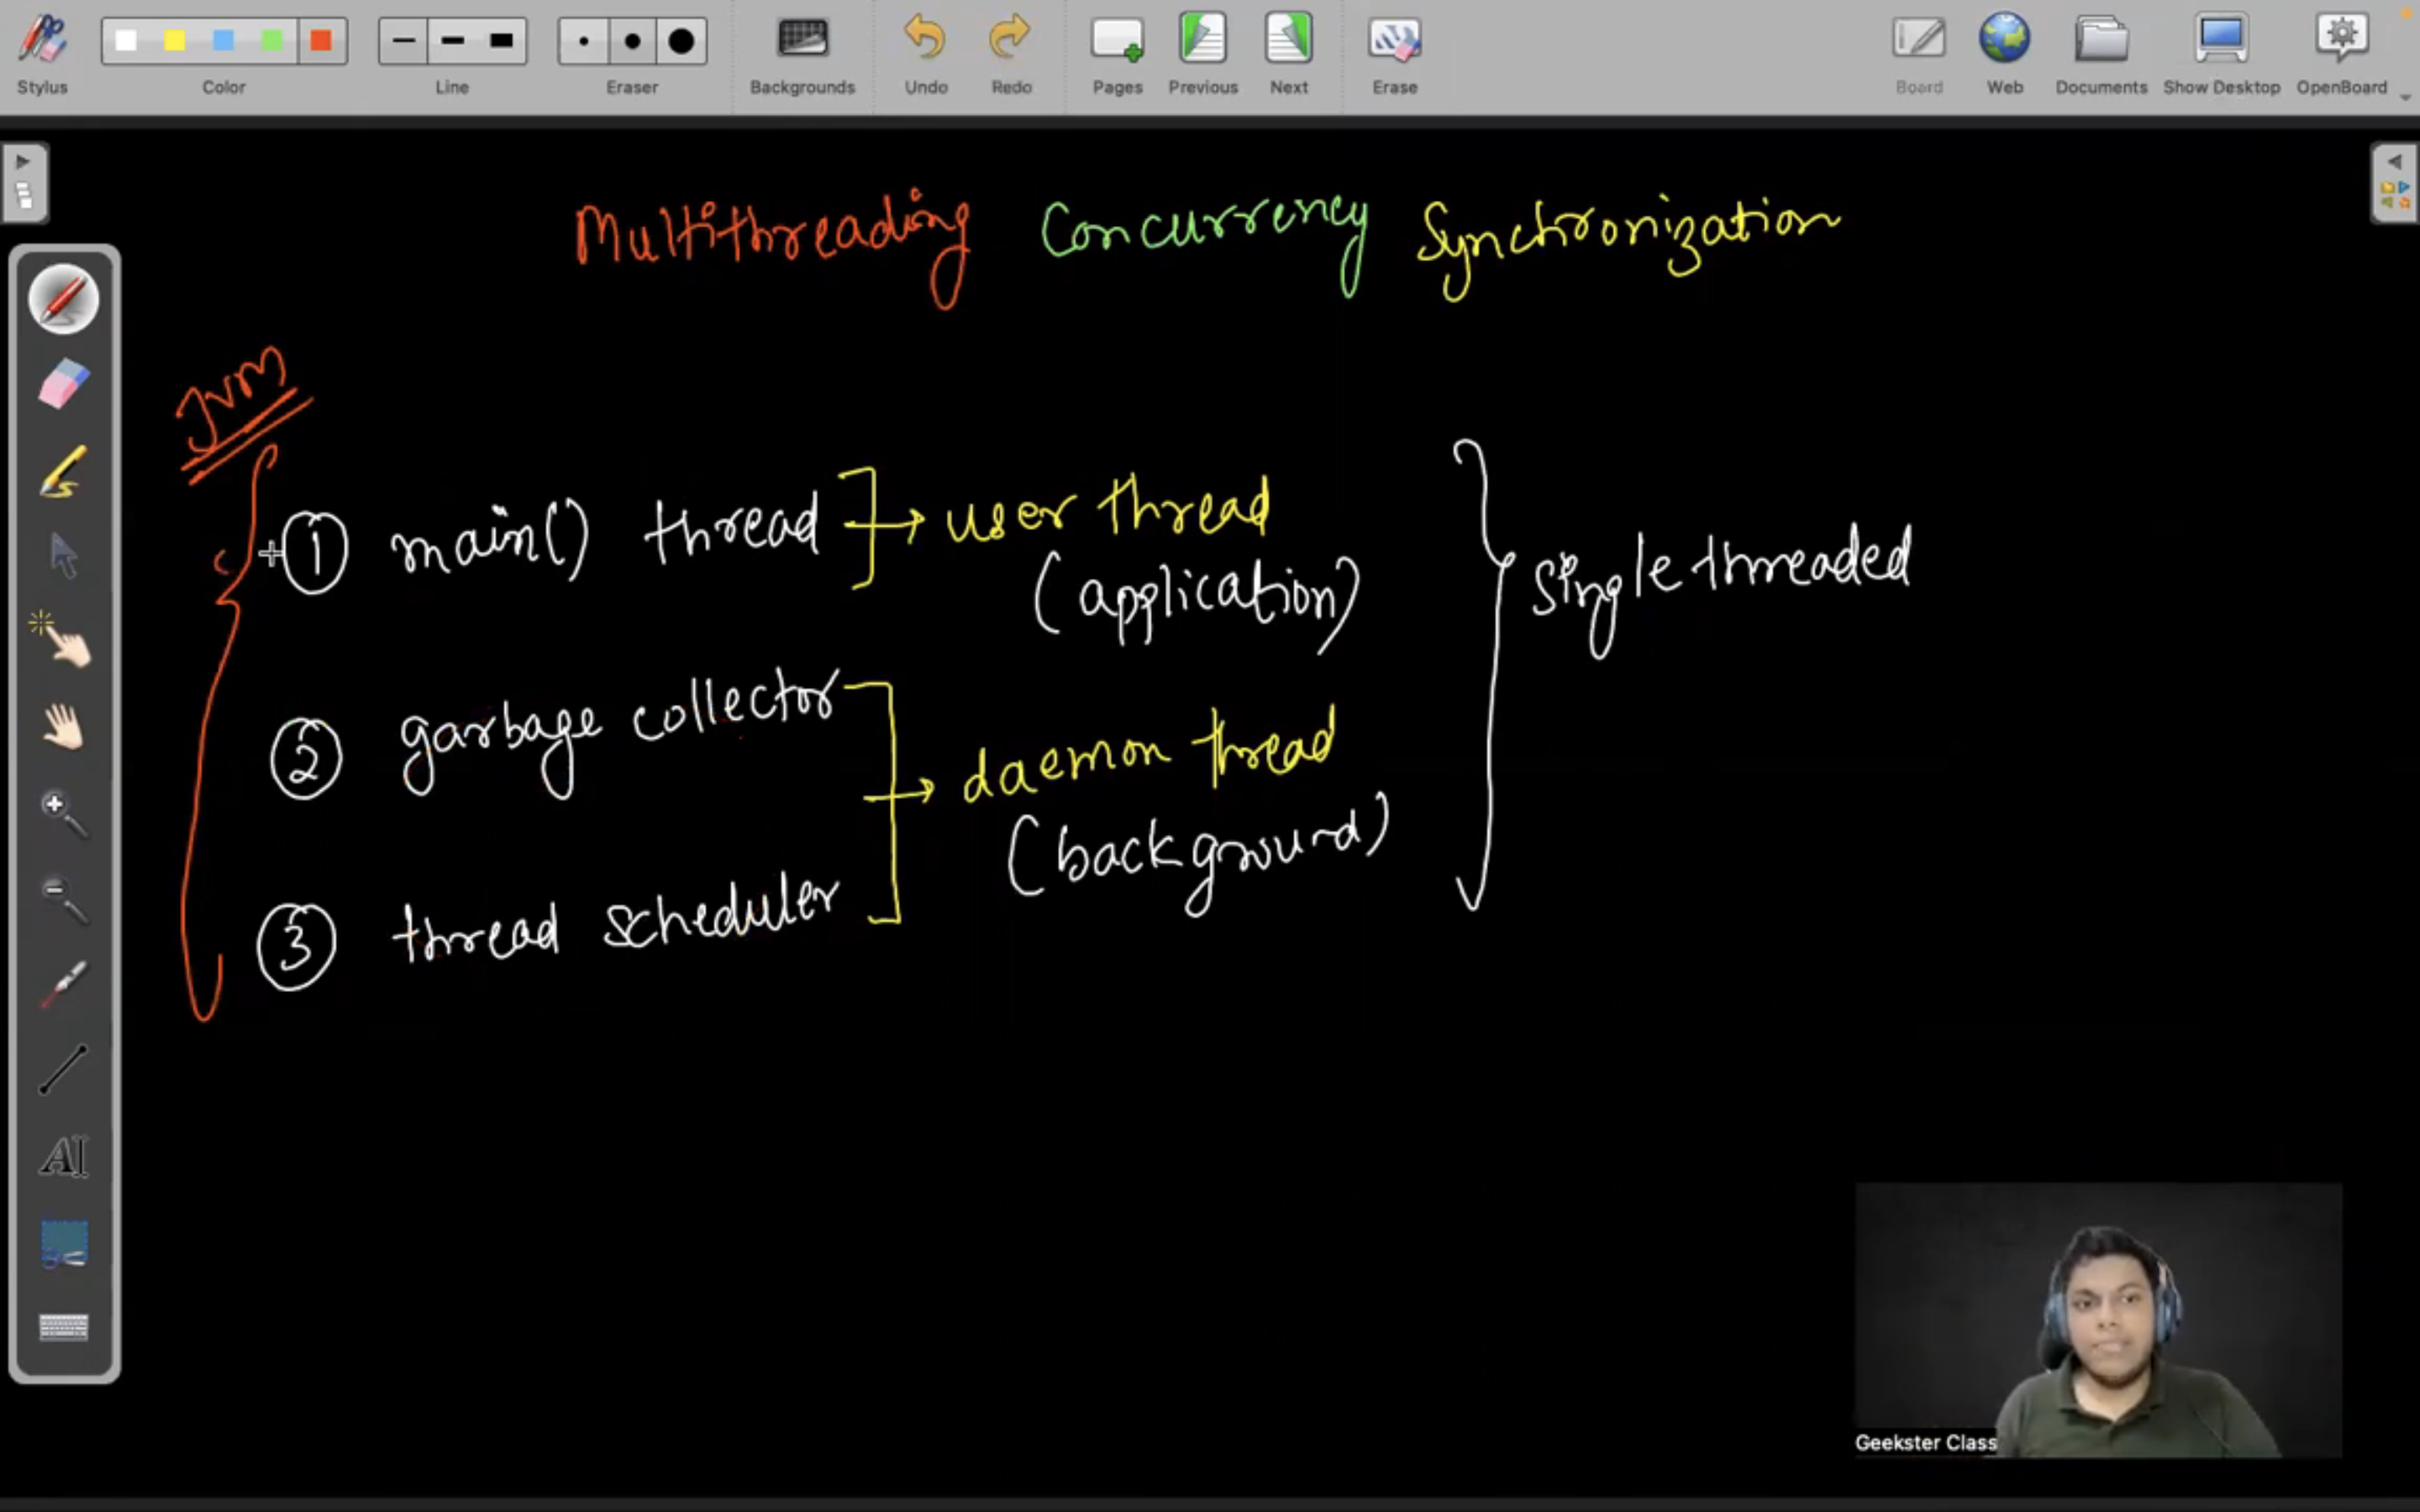 Stylus Color Line Eraser Backgrounds Undo Redo Pages Previous Next Erase Board Web Documents Show Desktop OpenBoard
Multithreading Concurrency Synchronization
JVM
① main() thread → user thread
(application)
single threaded
② garbage collector
→ daemon thread
(background)
③ thread scheduler
AI
Geekster Class